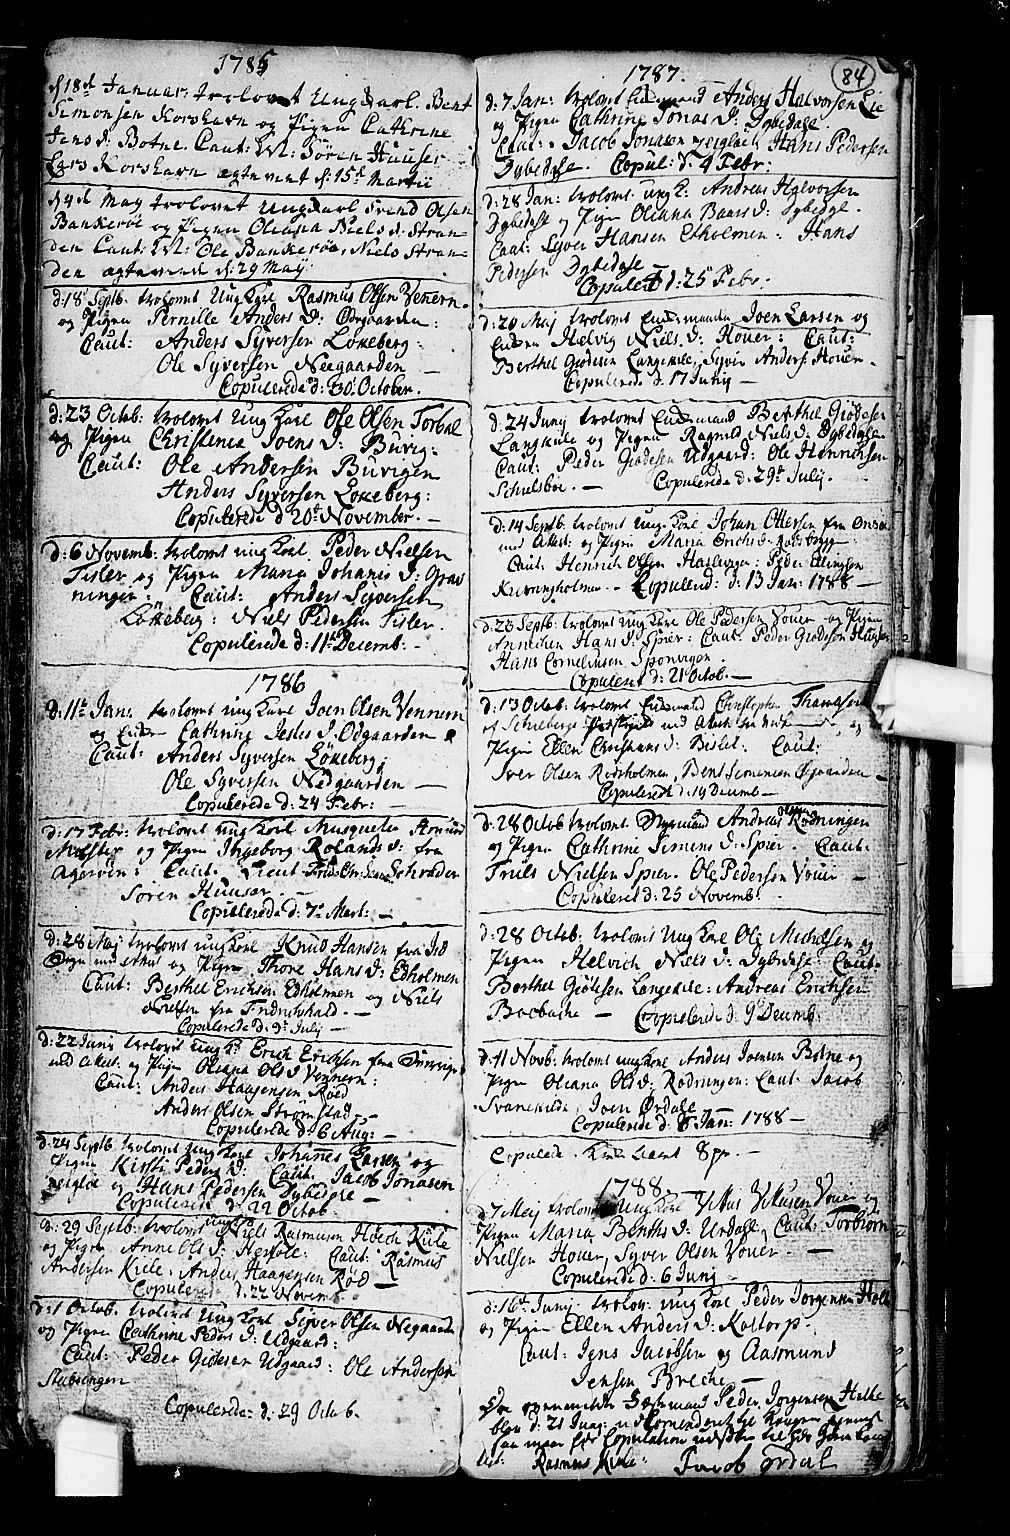 1785
d: 18d Januar: trolovet Ungkarl. Bent
Simonsen Korshavn og Pigen Cathrine
Jens d: Botne. Caut: M: Sören Huuser
Lars Korshavn ægteviet d: 15d Martii
d 4d May trolovet Ungkarl Svend Olsen
Bankeröe og Pigen Oleana Niels d: Stran-
den Caut: M: Ole Bankeröe, Niels Stran-
den ægteviede d: 29 Maij
d: 18 Septb. trolovet Ung Karl Rasmus Olsen Vennern
og Pigen Pernille Anders D: Odegaarden:
Caut: Anders Syversen Lökeberg:
Ole Syversen Neegaarden —
Copulerede d: 30 October.
d: 23 Octob: trolovet Ung Karl Ole Olsen Torbal
og Pigen Christence Joens D: Buvig:
Caut: Ole Andersen Buvigen
Anders Syversen Lökeberg:
Copulerede d 20t November. —
d: 6 Novemb: trolovet ung Karl Peder Nielsen
Tisler og Pigen Maria Johanis D: Grav
ninger: Caut: Anders Syversen
Lökkeberg: Niels Pedersen Tisler.
Copulerede d: 11t Decemb: —
1786
d: 11t Jan: trolovet ung Karl Joen Olsen Vennern
og Enken Cathrine Jesles D: Odgaarden
Caut: Anders Syversen Lökeberg;
Ole Syversen Nedgaarden —
Copulerede d: 24 Febr: —
d: 17 Febr: trolovet ung Karl Musqueteer Amund
og Pigen Ingeborg Rolands d: fra
Agerøen: Caut. Lieut Schrøder
Sören Huuser. —
Copulerede d: 7de Mart: —
d: 28 Maj trolovet ung Karl Knud Hansen fra Id
Sogn med Attest og Pigen Thore Hans D: Edholmen
Caut: Berthel Erichsen Edholmen og Niels
Nielsen fra Fridrichshald. —
Copulerede d. 9de Julij —
d: 22 Junij trolovet ung K. Erich Erichsen fra Sverrige
med Attest: og Pigen Oleana Ols d Vennern:
Caut: Anders Haagensen Röed
Anders Olsen Strömstad —
Copulerede d: 6 Aug: —
d: 24 Septb. trolovet Ung Karl Johannes Larsen og
Pigen Kirsti Peders D: Caut: Jacob Jonasen
og Hans Pedersen Dybedahl —
Copulerede d: 22 Octob.
d: 29 Septb: trolovet ungkarl Niels Rasmusen Höech Kiile
og Pigen Anne Ols D: Caut: Rasmus
Andersen Kiile. Anders Haagensen Röd —
Copulerede d: 22 Novemb
d: 1 Octob. trolovet Ung Karl Syver Olsen Negaard
og Pigen Cathrine Peders D: Udgaard:
Caut: Peder Giölesen Udgaard: Ole Andersen
Stubsengen
Copulerede: d: 29 Octob.
84
1787.
d: 7 Jan: trolovet Enkemand Anders Halvorsen Lie
og Pigen Cathrine Jonas D: Dybedale
Caut: Jacob Jonasen Hans Pedersen
Dybedahl Copul: d: 4 Febr:
d: 28 Jan: trolovet ung K: Andreas Halvorsen
Dybedahl og Pigen Oleana Baars D: Dybedal.
Caut: Syver Hansen Edholmen: Hans
Pedersen Dybedahl —
Copuleret d: 25 Febr.
d: 20 Maj trolovet Enkemanden Joen Larsen og
Enken Helvig Niels D: Houer: Caut:
Berthel Giölesen Langekiile, Syver Anders: Houer.
Copulerede d: 17 Junij —
d: 24 Junij trolovet Enkemand Berthel Giölesen
Langkiile og Pigen Ragnild Niels D: Dybedahl
Caut: Peder Giölesen Udgaard: Ole Henrichsen
Schulsboe. — Copulerede d: 29t Julij. —
d: 14 Septb: trolovet Ung Karl Johan Ottersen fra Onsø
med Attest: og Pigen Maria Erichs d:
Caut: Henrich Olsen Haslevigen: Peder Ellingsen
Kiærringholmen — Copulered: d: 13 Jan: 1788 —
d: 23 Septb: trolovet ung Karl Ole Pedersen Vouer og Pigen
Annichen Hans D: Spier: Caut. Peder Giölesen Huuser
Hans Corneliusen Sponvigen.
Copuleret d: 21 Octob. —
d: 13 Octob: trolovet Enkemand Christopher Thomesen
af Schieberg Præstegield med Attest og
Pigen Ellen Christians d: Bislet: Caut:
Sver Olsen Rødsholmen, Bent Simensen
Copulerede d: 14 Decemb —
d: 28 Octob trolovet Styrmand Andreas Olsen Rödningen
og Pigen Cathrine Simens D: Spier. Caut.
Truls Nielsen Spier. Ole Pedersen Vouer —
Copuleret d: 25 Novemb.
d: 28 Octob. trolovet Ung Karl Ole Michelsen og
Pigen Helvich Niels D: Dybedahl: Caut.
Berthel Giölesen Langekiile: Andreas Erichsen
Bocbache — Copulerede d: 9 Decmb.
d: 11 Novb: trolovet ung Karl Anders Joensen Botne og
Pigen Oleana Ols d: Rödningen: Caut. Jacob
Svanekiile Joen Ørdale —
Copulerede d: 6 Jan: 1788 —
Copulerede 8 pr. —
1788
d 7 Maij trolovet Ung Karl Nils Nilsen Vouer og
Pigen Maria Benths D: Urdahl: Caut: Torbiørn
Nielsen Houer, Syver Olsen Vouer. —
Copulerede d: 6 Junj —
d: 16t Junij trolov: ung Karl Peder Jørgensen Holte
og Pigen Ellen Anders D: Koltorp.
Caut: Jens Jacobsen og Aasmund
Jensen Breche —
Da ovenmeldte Peder Jørgensen Holte
blev d: 21 Junij til Kongens
saa maae før Copulation
Rasmus Kiile: Jacob Ørdal